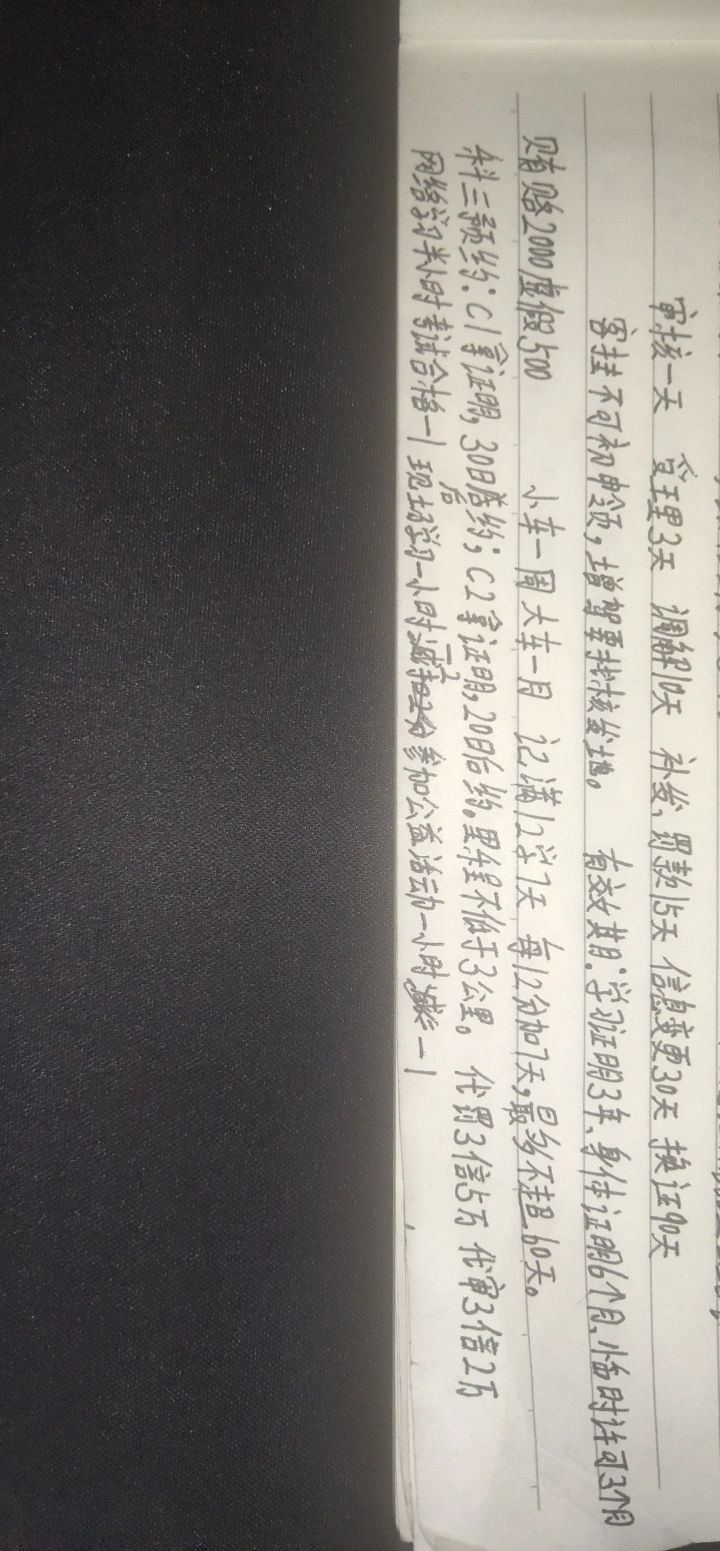 审核一天 受理3天 调解10天 补发、罚款15天 信息变更30天 换证90天
客挂不可初申领,增驾要找核发地。 有效期:学习证明3年、身体证明6个月、临时许可3个月
贿赂2000虚假500 小车一周大车一月 记满12学7天 每12分加7天,最多不超60天。
科三预约:C1拿证明,30日后约;C2拿证明,20日后约。里程不低于3公里。 代罚3倍5万 代审3倍2万
网络学习半小时考试合格一1 现场学习一小时 参加公益活动一小时 一1